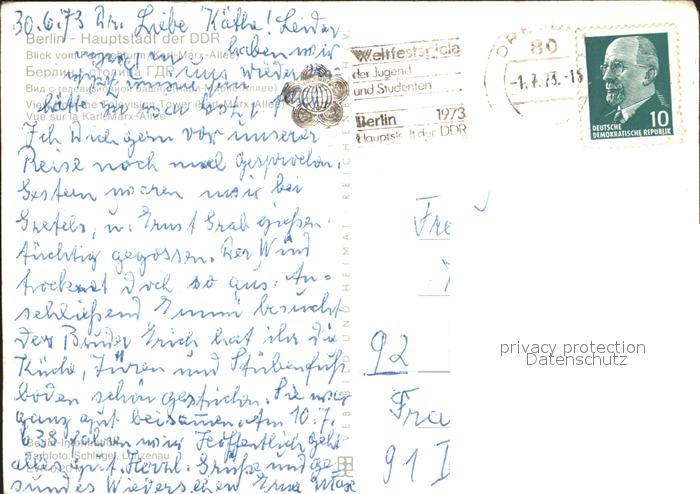 30.6.73 Liebe Käthe! Leider
haben wir
uns wieder
Ich Dich gern vor unserer
Reise noch mal gesprochen.
Gestern waren wir bei
Gretels, u. Ernst Grab gießen.
tüchtig gegossen. Der Wind
trocknet doch so aus. An-
schließend Emmi besucht
der Bruder Erich hat ihr die
Küche, Türen und Stubenfuß
boden schön gestrichen. Sie war
ganz gut beisammen. Am 10.7.
fahren wir. Hoffentlich geht
alles gut. Herzl. Grüße und ge-
sundes Wiedersehen Erna
Berlin - Hauptstadt der DDR
Blick vom (Karl-Marx-Allee)
Берлин - столица ГДР
Television Tower (Karl-Marx-Allee)
Vue sur la Karl-Marx-Allee
Berlin-Information
BILD UND HEIMAT REICHENBACH
Weltfestspiele
der Jugend
und Studenten
Berlin 1973
Hauptstadt der DDR
80
-1.7.73.-15
10
DEUTSCHE
DEMOKRATISCHE REPUBLIK
Fra
92
Fra
91
privacy protection
Datenschutz